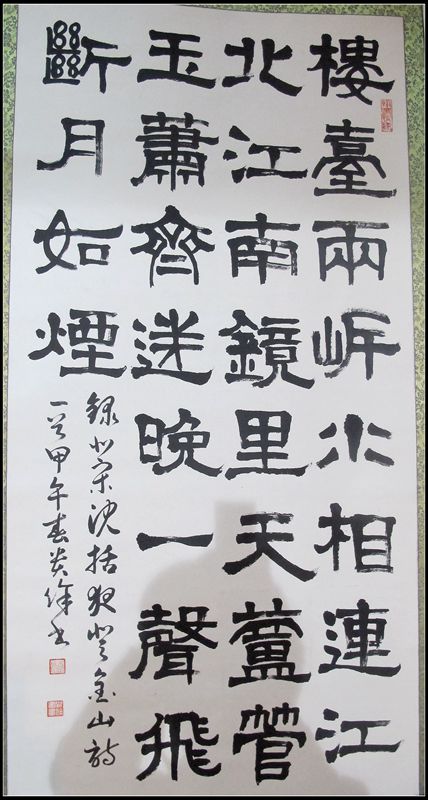 樓臺兩岸水相連江
北江南鏡里天蘆管
玉蕭齊送晚一聲飛
斷月如煙
錄北宋沈括夜登金山詩
一首甲午春